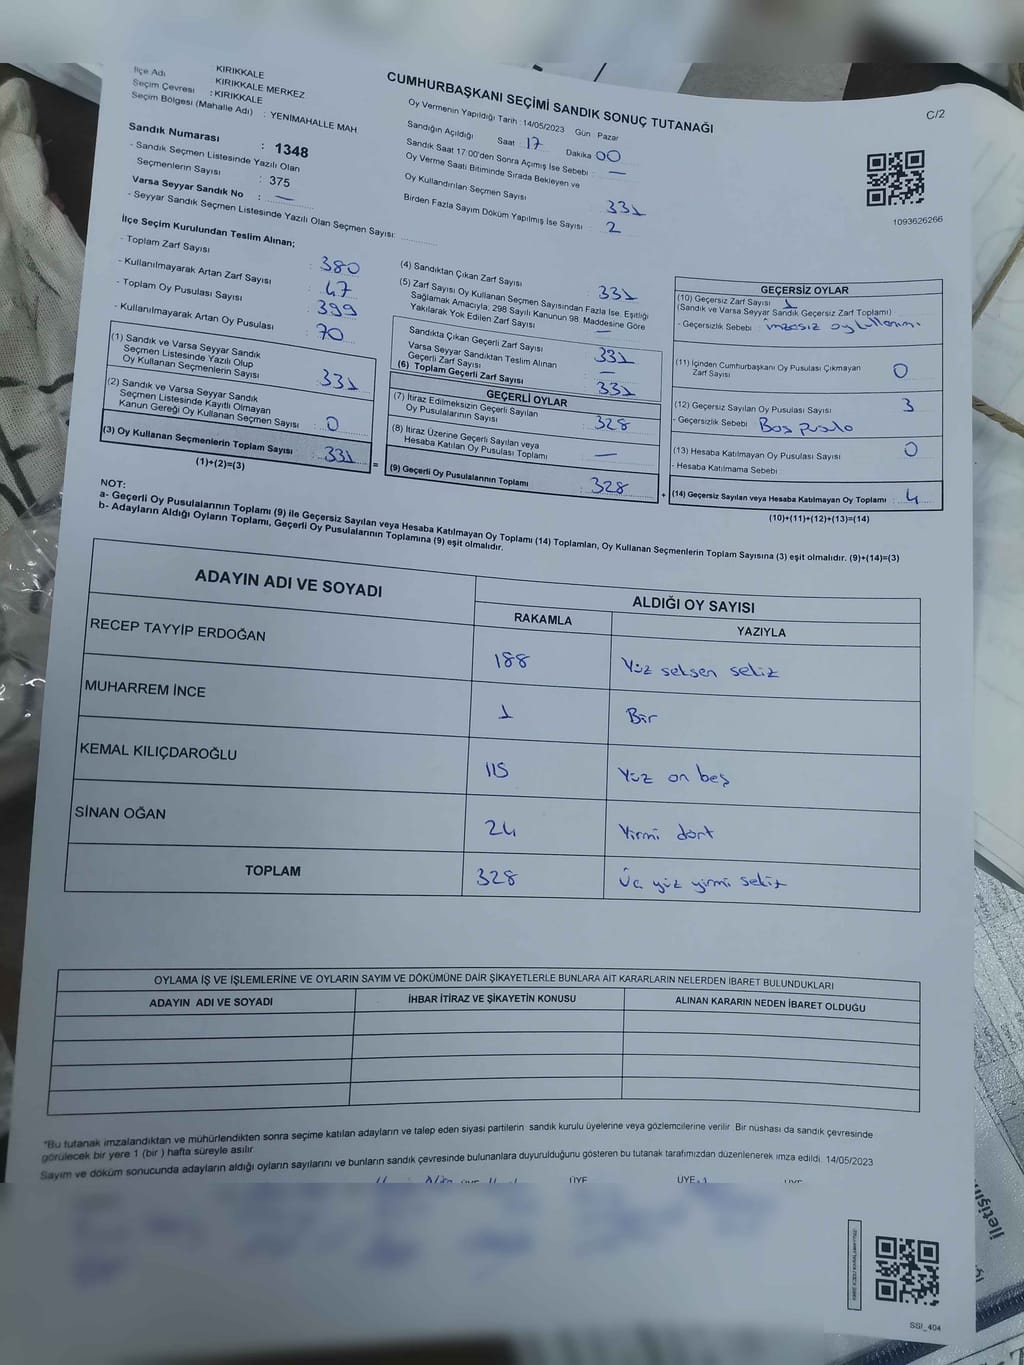 İlçe Adı KIRIKKALE
KIRIKKALE MERKEZ
Seçim Çevresi : KIRIKKALE
Seçim Bölgesi (Mahalle Adı) : YENİMAHALLE MAH
CUMHURBAŞKANI SEÇİMİ SANDIK SONUÇ TUTANAĞI
C/2
Oy Vermenin Yapıldığı Tarih : 14/05/2023 Gün Pazar
Sandığın Açıldığı Saat 17 Dakika 00
Sandık Saat 17:00'den Sonra Açımış İse Sebebi —
Oy Verme Saati Bitiminde Sırada Bekleyen ve
Oy Kullandırılan Seçmen Sayısı 331
Birden Fazla Sayım Döküm Yapılmış İse Sayısı 2
1093626266
Sandık Numarası : 1348
- Sandık Seçmen Listesinde Yazılı Olan
Seçmenlerin Sayısı : 375
Varsa Seyyar Sandık No : —
- Seyyar Sandık Seçmen Listesinde Yazılı Olan Seçmen Sayısı:
İlçe Seçim Kurulundan Teslim Alınan;
- Toplam Zarf Sayısı : 380
- Kullanılmayarak Artan Zarf Sayısı : 47
- Toplam Oy Pusulası Sayısı : 399
- Kullanılmayarak Artan Oy Pusulası : 70
(1) Sandık ve Varsa Seyyar Sandık
Seçmen Listesinde Yazılı Olup
Oy Kullanan Seçmenlerin Sayısı : 331
(2) Sandık ve Varsa Seyyar Sandık
Seçmen Listesinde Kayıtlı Olmayan
Kanun Gereği Oy Kullanan Seçmen Sayısı : 0
(3) Oy Kullanan Seçmenlerin Toplam Sayısı : 331
(1)+(2)=(3)
=
(4) Sandıktan Çıkan Zarf Sayısı : 331
(5) Zarf Sayısı Oy Kullanan Seçmen Sayısından Fazla İse, Eşitliği
Sağlamak Amacıyla, 298 Sayılı Kanunun 98. Maddesine Göre
Yakılarak Yok Edilen Zarf Sayısı : —
Sandıkta Çıkan Geçerli Zarf Sayısı : 331
Varsa Seyyar Sandıktan Teslim Alınan
Geçerli Zarf Sayısı : —
(6) Toplam Geçerli Zarf Sayısı : 331
GEÇERLİ OYLAR
(7) İtiraz Edilmeksizin Geçerli Sayılan
Oy Pusulalarının Sayısı : 328
(8) İtiraz Üzerine Geçerli Sayılan veya
Hesaba Katılan Oy Pusulası Toplamı : —
(9) Geçerli Oy Pusulalarının Toplamı : 328
+
GEÇERSİZ OYLAR
(10) Geçersiz Zarf Sayısı 1
(Sandık ve Varsa Seyyar Sandık Geçersiz Zarf Toplamı)
- Geçersizlik Sebebi : imzasız oy kullanımı
(11) İçinden Cumhurbaşkanı Oy Pusulası Çıkmayan
Zarf Sayısı 0
(12) Geçersiz Sayılan Oy Pusulası Sayısı 3
- Geçersizlik Sebebi Boş pusula
(13) Hesaba Katılmayan Oy Pusulası Sayısı 0
- Hesaba Katılmama Sebebi
(14) Geçersiz Sayılan veya Hesaba Katılmayan Oy Toplamı : 4
(10)+(11)+(12)+(13)=(14)
NOT:
a- Geçerli Oy Pusulalarının Toplamı (9) ile Geçersiz Sayılan veya Hesaba Katılmayan Oy Toplamı (14) Toplamları, Oy Kullanan Seçmenlerin Toplam Sayısına (3) eşit olmalıdır. (9)+(14)=(3)
b- Adayların Aldığı Oyların Toplamı, Geçerli Oy Pusulalarının Toplamına (9) eşit olmalıdır.
ADAYIN ADI VE SOYADI ALDIĞI OY SAYISI
RAKAMLA YAZIYLA
RECEP TAYYİP ERDOĞAN 188 Yüz seksen sekiz
MUHARREM İNCE 1 Bir
KEMAL KILIÇDAROĞLU 115 Yüz on beş
SİNAN OĞAN 24 Yirmi dört
TOPLAM 328 Üç yüz yirmi sekiz
OYLAMA İŞ VE İŞLEMLERİNE VE OYLARIN SAYIM VE DÖKÜMÜNE DAİR ŞİKAYETLERLE BUNLARA AİT KARARLARIN NELERDEN İBARET BULUNDUKLARI
ADAYIN ADI VE SOYADI İHBAR İTİRAZ VE ŞİKAYETİN KONUSU ALINAN KARARIN NEDEN İBARET OLDUĞU
*Bu tutanak imzalandıktan ve mühürlendikten sonra seçime katılan adayların ve talep eden siyasi partilerin sandık kurulu üyelerine veya gözlemcilerine verilir. Bir nüshası da sandık çevresinde
görülecek bir yere 1 (bir ) hafta süreyle asılır.
Sayım ve döküm sonucunda adayların aldığı oyların sayılarını ve bunların sandık çevresinde bulunanlara duyurulduğunu gösteren bu tutanak tarafımızdan düzenlenerek imza edildi. 14/05/2023
ÜYE ÜYE
SSI_404